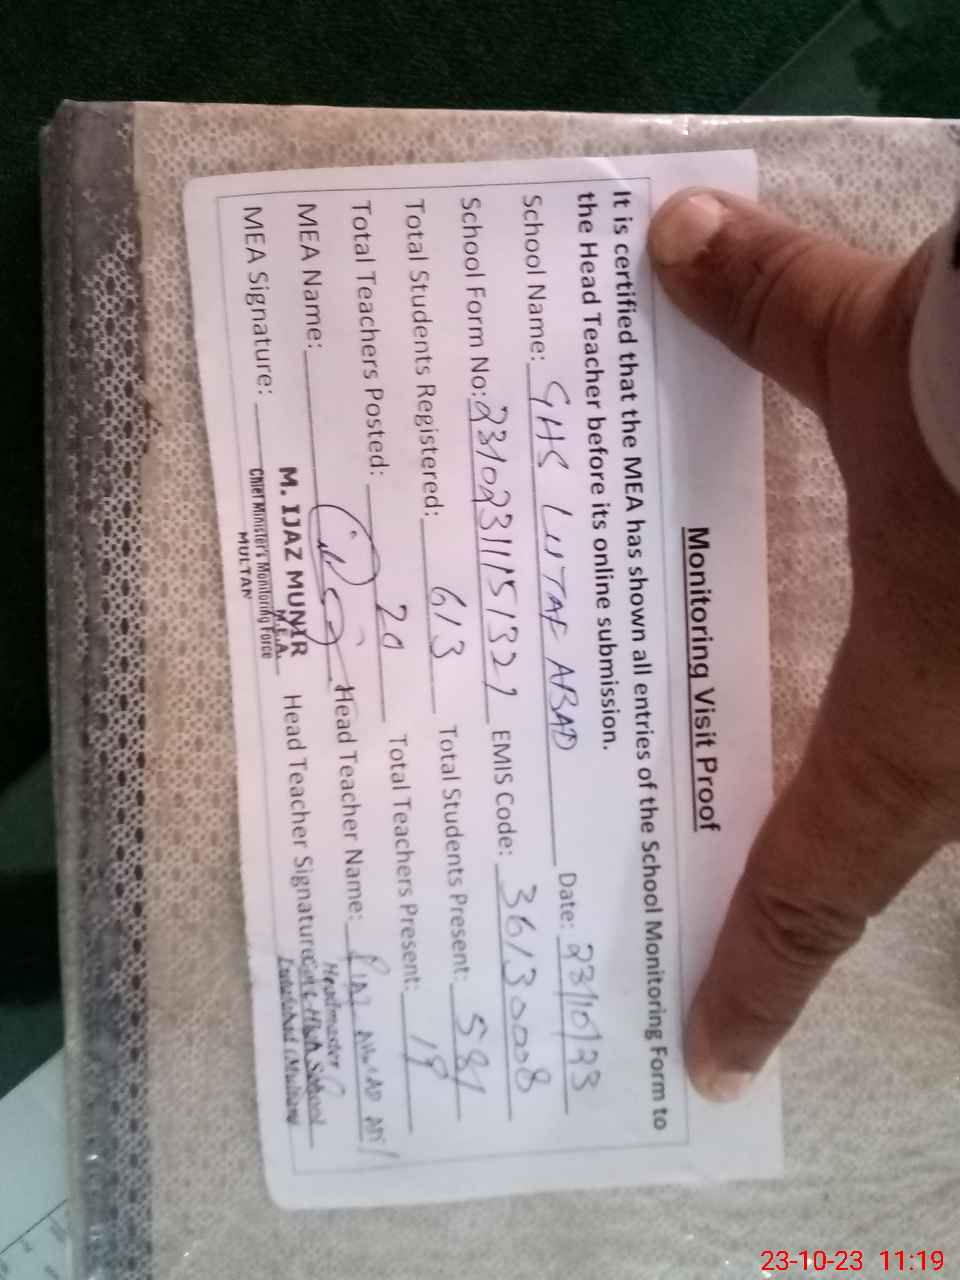 Monitoring Visit Proof
It is certified that the MEA has shown all entries of the School Monitoring Form to
the Head Teacher before its online submission.
School Name: GHS LUTAF ABAD Date: 23/10/23
School Form No: EMIS Code: 36130008
Total Students Registered: 613 Total Students Present: 581
Total Teachers Posted: 20 Total Teachers Present: 19
MEA Name: Head Teacher Name:
MEA Signature: M. IJAZ MUNIR Head Teacher Signature:
M.E.A. Headmaster
Chief Minister's Monitoring Force Govt. High School
MULTAN
23-10-23 11:19